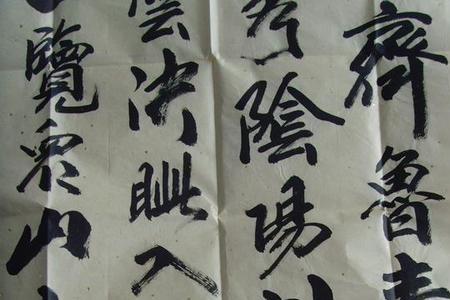 齊魯青
秀陰陽
雲決眦入
覽眾山